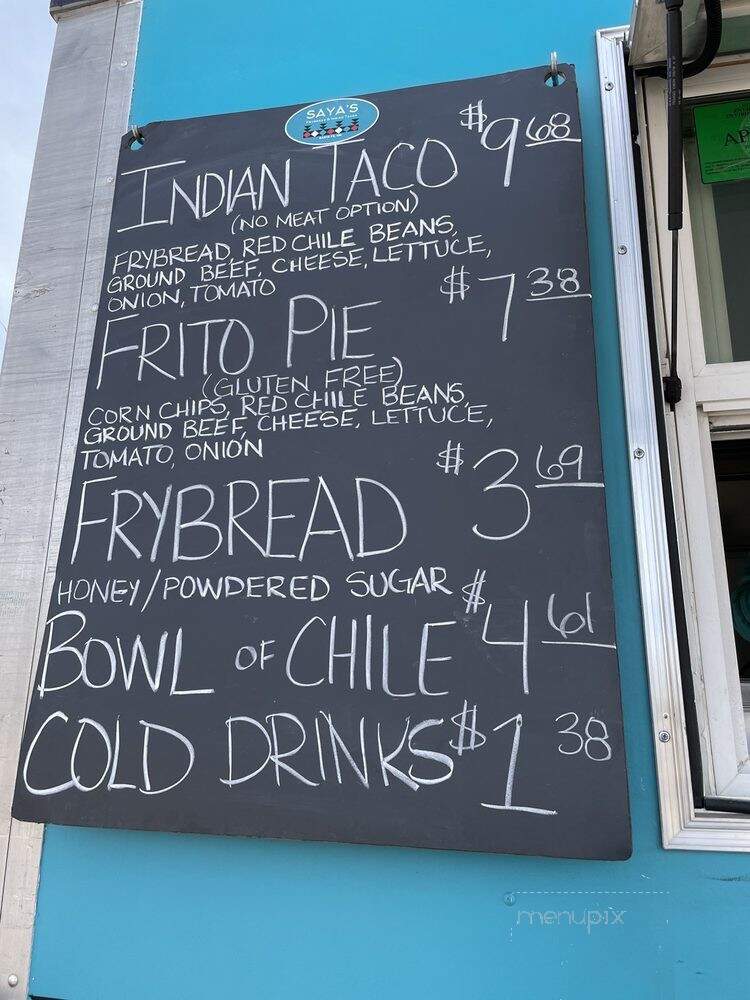 SAYA'S
INDIAN TACO $9.68
(NO MEAT OPTION)
FRYBREAD, RED CHILE BEANS,
GROUND BEEF, CHEESE, LETTUCE,
ONION, TOMATO
FRITO PIE $7.38
(GLUTEN FREE)
CORN CHIPS, RED CHILE BEANS,
GROUND BEEF, CHEESE, LETTUCE,
TOMATO, ONION
FRYBREAD $3.69
HONEY/POWDERED SUGAR
BOWL OF CHILE $4.61
COLD DRINKS $1.38
menupix